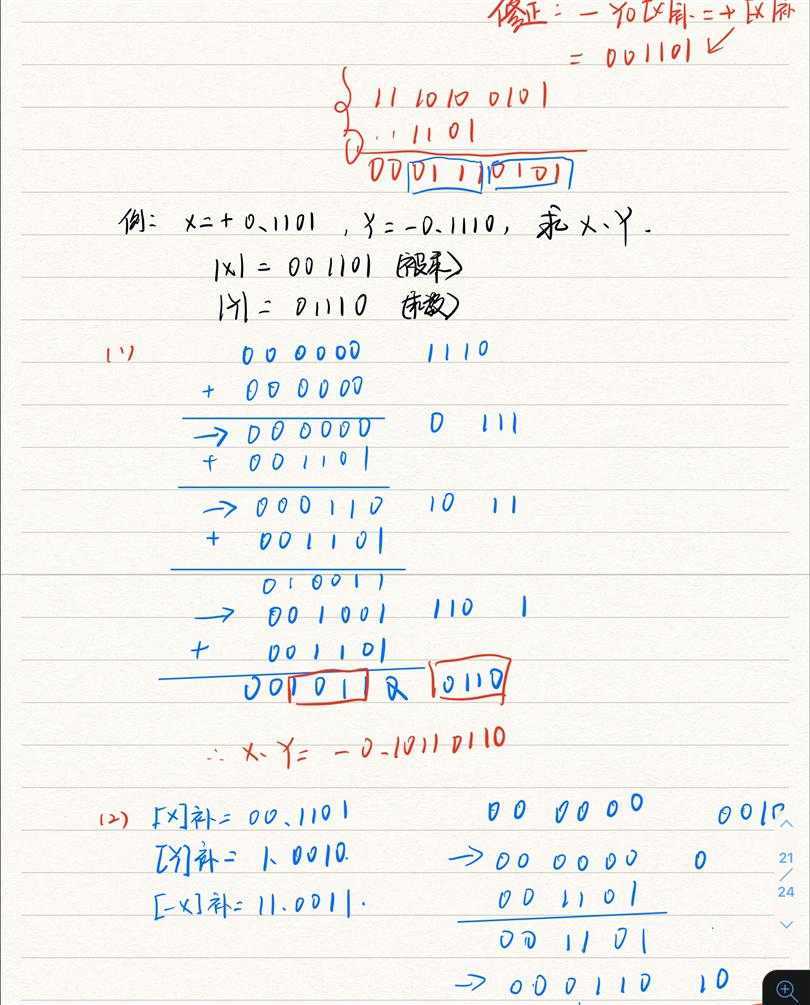 修正: - Y0[X]补 = + [X]补
= 001101 ↙
11 1010 0101
.. 1101
00 0111 0101
例: X=+0.1101 , Y=-0.1110, 求 X·Y.
|X| = 001101 (被乘)
|Y| = 01110 (乘数)
(1) 000000 1110
+ 000000
→ 000000 0 111
+ 001101
→ 000110 10 11
+ 001101
010011
→ 001001 110 1
+ 001101
001011 0110
∴ X·Y= -0.10110110
(2) [X]补= 00.1101 00 0000 001
[Y]补= 1.0010. → 00 0000 0
21
/
24
[-X]补= 11.0011. 00 1101
00 1101
→ 000110 10